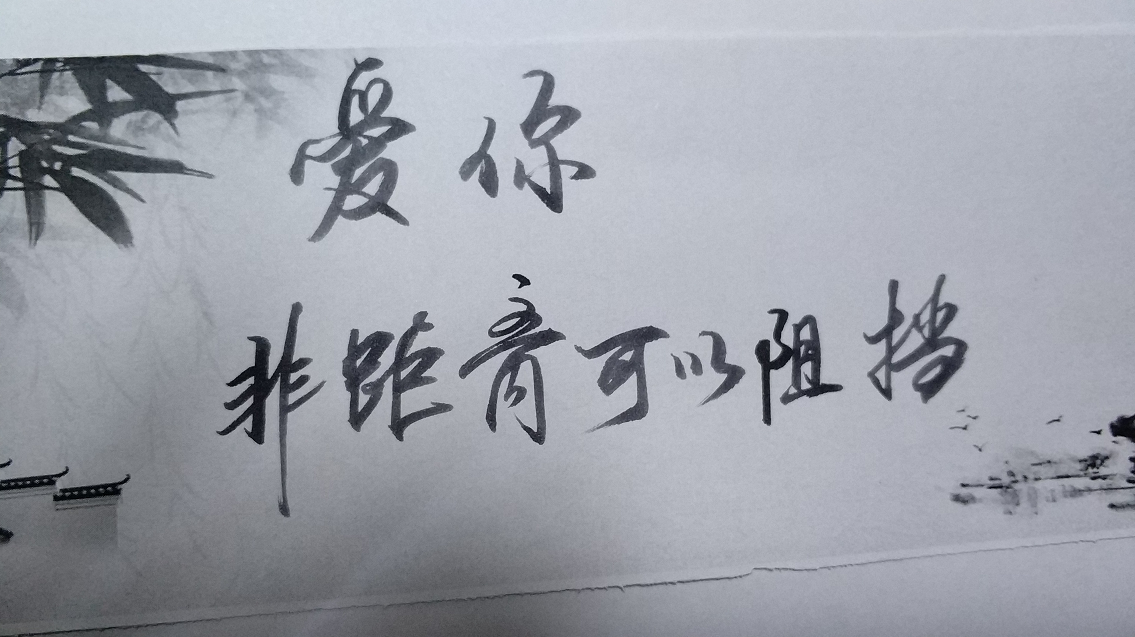 爱你
非距离可以阻挡